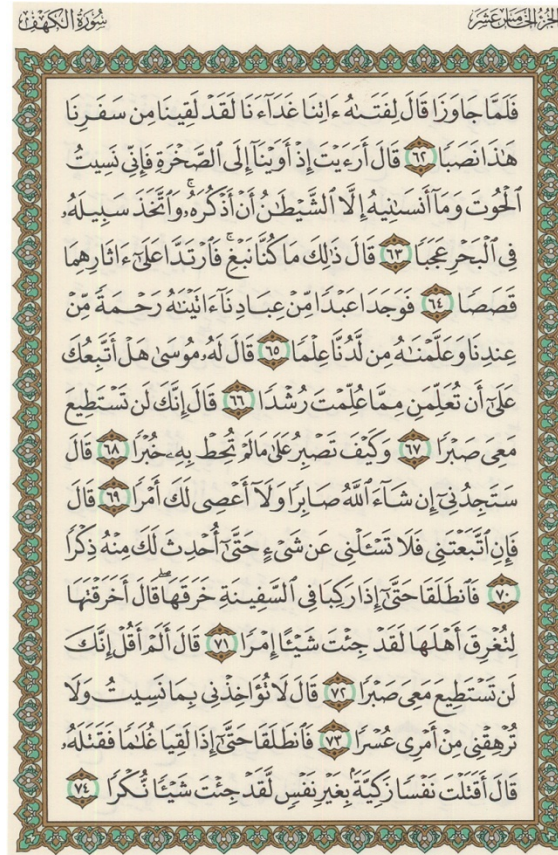 الجزء الخامس عشر
سورة الكهف
فَلَمَّا جَاوَزَا قَالَ لِفَتَىٰهُ ءَاتِنَا غَدَآءَنَا لَقَدْ لَقِينَا مِن سَفَرِنَا
هَٰذَا نَصَبًا ﴿٦٢﴾ قَالَ أَرَءَيْتَ إِذْ أَوَيْنَآ إِلَى ٱلصَّخْرَةِ فَإِنِّى نَسِيتُ
ٱلْحُوتَ وَمَآ أَنسَىٰنِيهُ إِلَّا ٱلشَّيْطَٰنُ أَنْ أَذْكُرَهُۥ ۚ وَٱتَّخَذَ سَبِيلَهُۥ
فِى ٱلْبَحْرِ عَجَبًا ﴿٦٣﴾ قَالَ ذَٰلِكَ مَا كُنَّا نَبْغِ ۚ فَٱرْتَدَّا عَلَىٰٓ ءَاثَارِهِمَا
قَصَصًا ﴿٦٤﴾ فَوَجَدَا عَبْدًا مِّنْ عِبَادِنَآ ءَاتَيْنَٰهُ رَحْمَةً مِّنْ
عِندِنَا وَعَلَّمْنَٰهُ مِن لَّدُنَّا عِلْمًا ﴿٦٥﴾ قَالَ لَهُۥ مُوسَىٰ هَلْ أَتَّبِعُكَ
عَلَىٰٓ أَن تُعَلِّمَنِ مِمَّا عُلِّمْتَ رُشْدًا ﴿٦٦﴾ قَالَ إِنَّكَ لَن تَسْتَطِيعَ
مَعِىَ صَبْرًا ﴿٦٧﴾ وَكَيْفَ تَصْبِرُ عَلَىٰ مَا لَمْ تُحِطْ بِهِۦ خُبْرًا ﴿٦٨﴾ قَالَ
سَتَجِدُنِىٓ إِن شَآءَ ٱللَّهُ صَابِرًا وَلَآ أَعْصِى لَكَ أَمْرًا ﴿٦٩﴾ قَالَ
فَإِنِ ٱتَّبَعْتَنِى فَلَا تَسْـَٔلْنِى عَن شَىْءٍ حَتَّىٰٓ أُحْدِثَ لَكَ مِنْهُ ذِكْرًا
﴿٧٠﴾ فَٱنطَلَقَا حَتَّىٰٓ إِذَا رَكِبَا فِى ٱلسَّفِينَةِ خَرَقَهَا ۖ قَالَ أَخَرَقْتَهَا
لِتُغْرِقَ أَهْلَهَا لَقَدْ جِئْتَ شَيْـًٔا إِمْرًا ﴿٧١﴾ قَالَ أَلَمْ أَقُلْ إِنَّكَ
لَن تَسْتَطِيعَ مَعِىَ صَبْرًا ﴿٧٢﴾ قَالَ لَا تُؤَاخِذْنِى بِمَا نَسِيتُ وَلَا
تُرْهِقْنِى مِنْ أَمْرِى عُسْرًا ﴿٧٣﴾ فَٱنطَلَقَا حَتَّىٰٓ إِذَا لَقِيَا غُلَٰمًا فَقَتَلَهُۥ
قَالَ أَقَتَلْتَ نَفْسًا زَكِيَّةًۢ بِغَيْرِ نَفْسٍ لَّقَدْ جِئْتَ شَيْـًٔا نُّكْرًا ﴿٧٤﴾